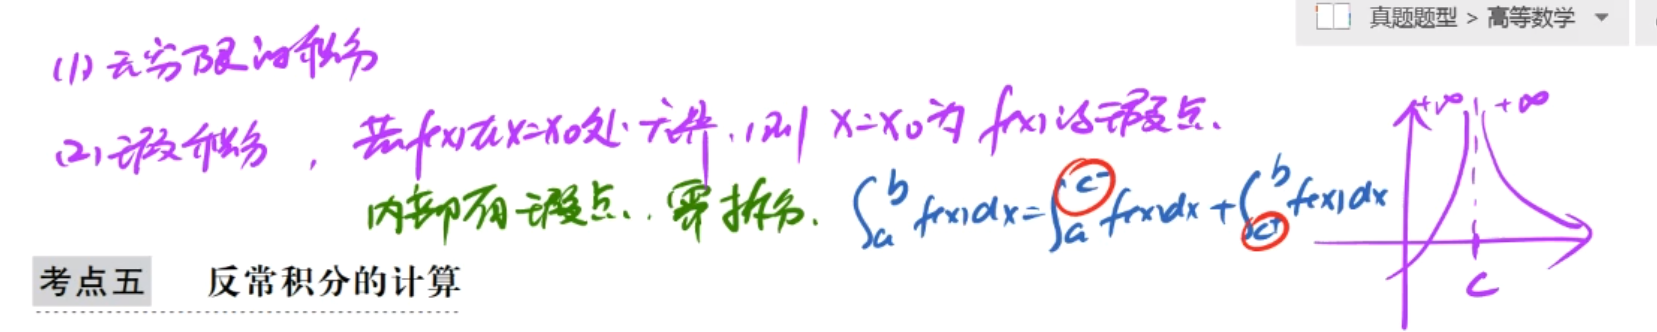 真题题型 > 高等数学
(1) 无穷限的积分
(2) 瑕积分，若f(x)在x=x₀处无界，则 x=x₀为 f(x)的瑕点.
内部有瑕点. 需拆分. ∫ₐᵇ f(x)dx=∫ₐᶜ⁻ f(x)dx+∫c⁺ᵇ f(x)dx
+∞ +∞
c
考点五 反常积分的计算